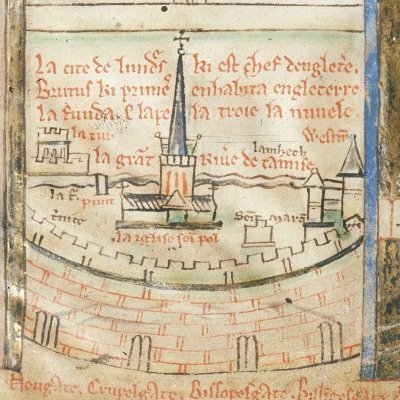 La cite de lund's ki est chef dengletere.
Brutus ki primes enhabita engleterre
la funda. E lapela troie la nuvele
la tur
Westm'
lamheth
la grant Rivere de tamise
la t'
punt
trinite
Seint Marc
la iglise sei pol
Neugate. Crupelgate. Bissopesgate. Billingesgate